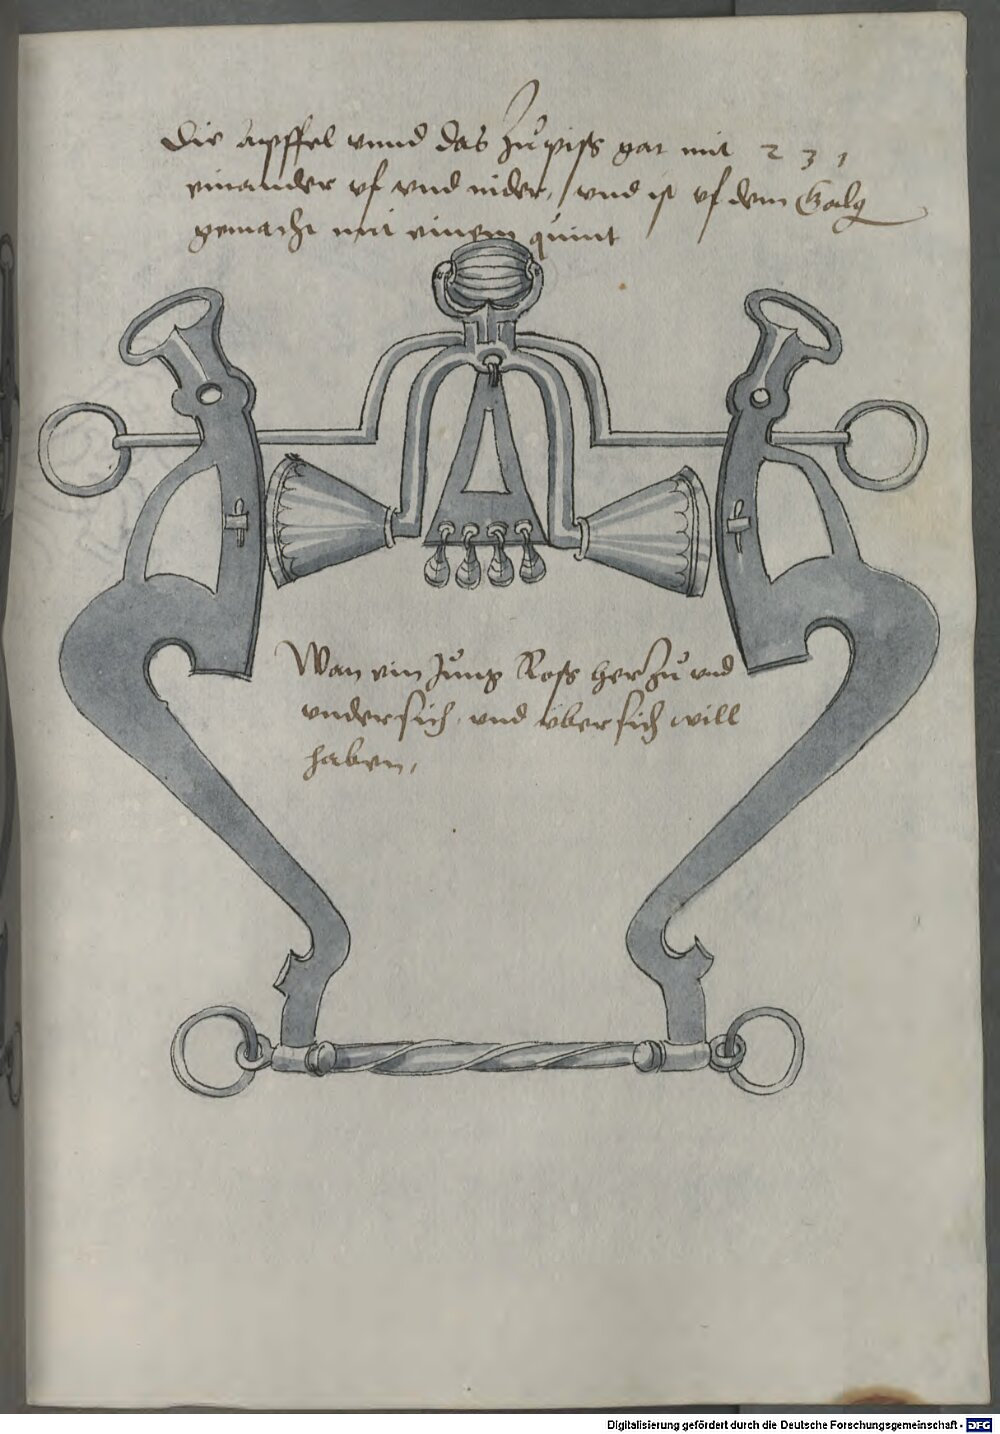 Die äpffel vnnd das Zůpiss gat mit 231
einander vf vnd nider, vnd ist vf dem Galg
gemacht mit einem quint
Wan ein Jůng Ross herZů vnd
vndersich, vnd übersich will
haben,
Digitalisierung gefördert durch die Deutsche Forschungsgemeinschaft - DFG